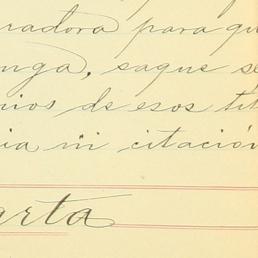 radora para qu
onga, saque se
nios de esos tit
ia ni citación
arta